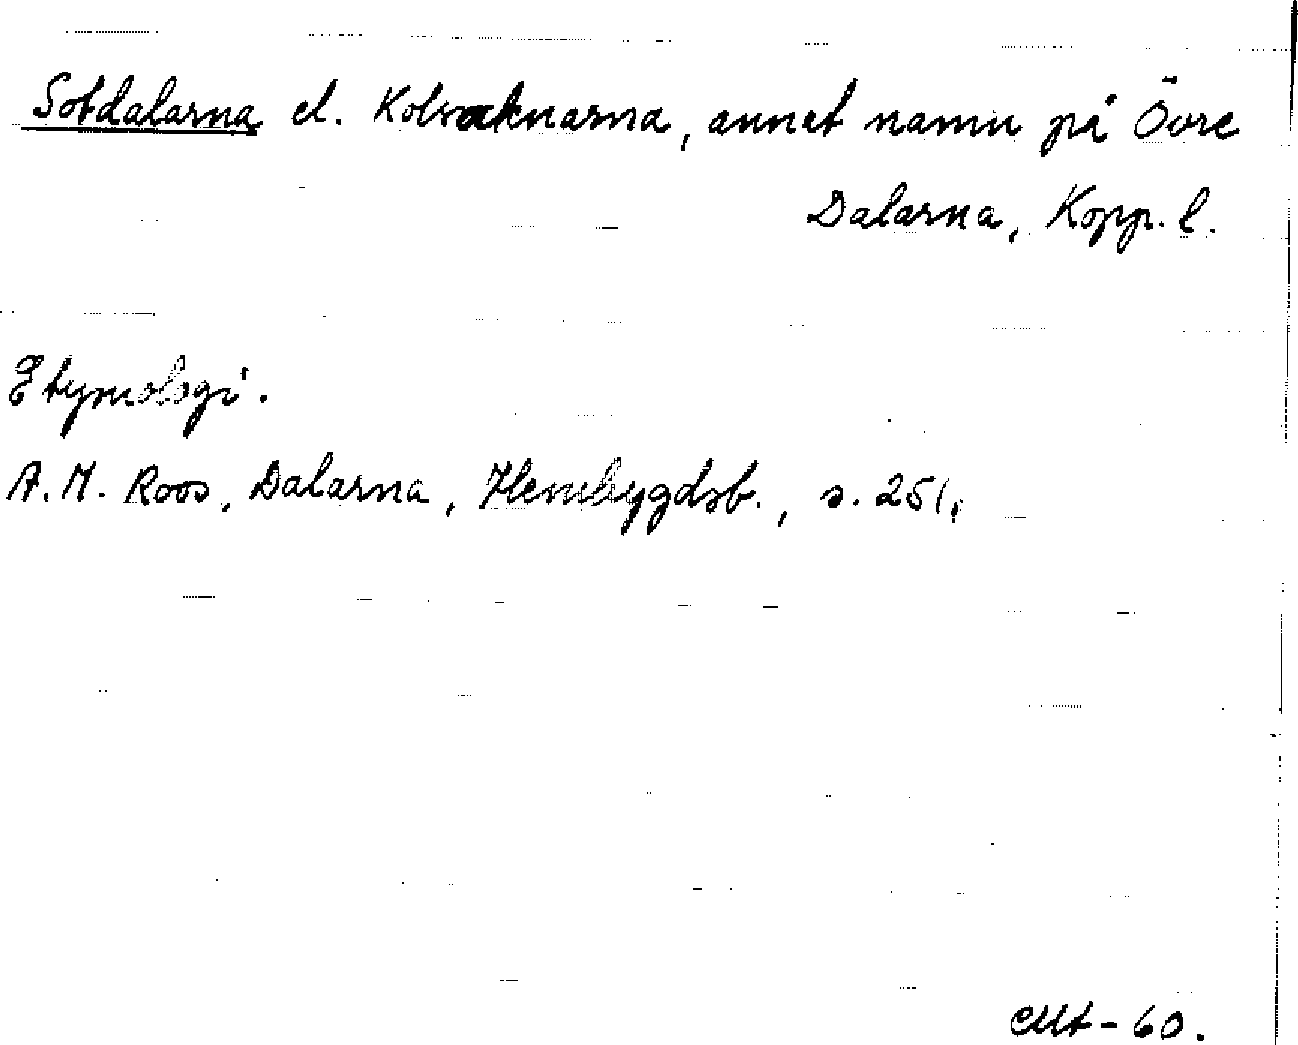 Sotdalarna el. Kolvaknarna, annat namn på Övre
Dalarna, Kopp. l.
Etymologi.
A. M. Roos, Dalarna, Hembygdsb., s. 251.
-60.